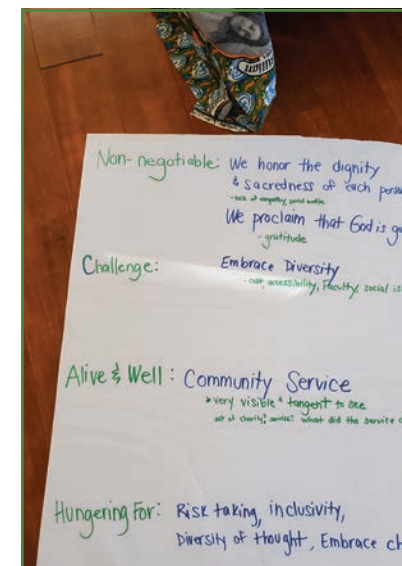 Non-negotiable: We honor the dignity
& sacredness of each
We proclaim that God is
- gratitude
Challenge: Embrace Diversity
accessibility, Faculty, social
Alive & Well: Community Service
very visible & tangent to see
act of charity? service? what did the service
Hungering For: Risk taking, inclusivity,
Diversity of thought, Embrace